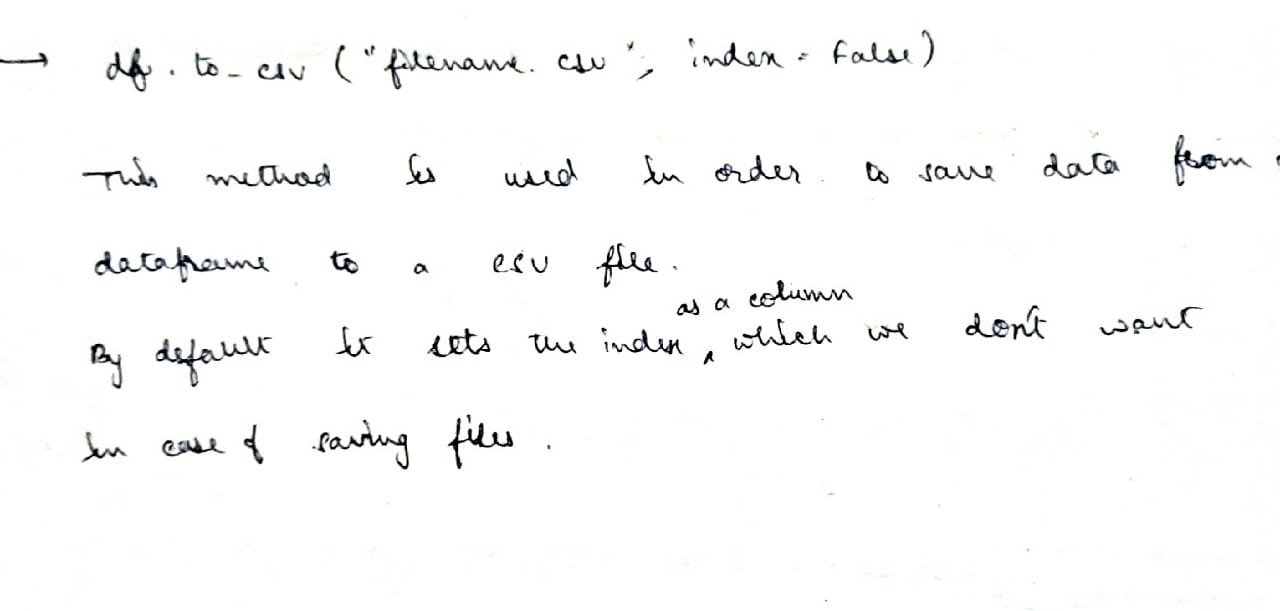 → df.to_csv ("filename.csv", index = False)
This method is used in order to save data from
dataframe to a csv file.
By default it sets the index as a column, which we don't want
in case of saving files.